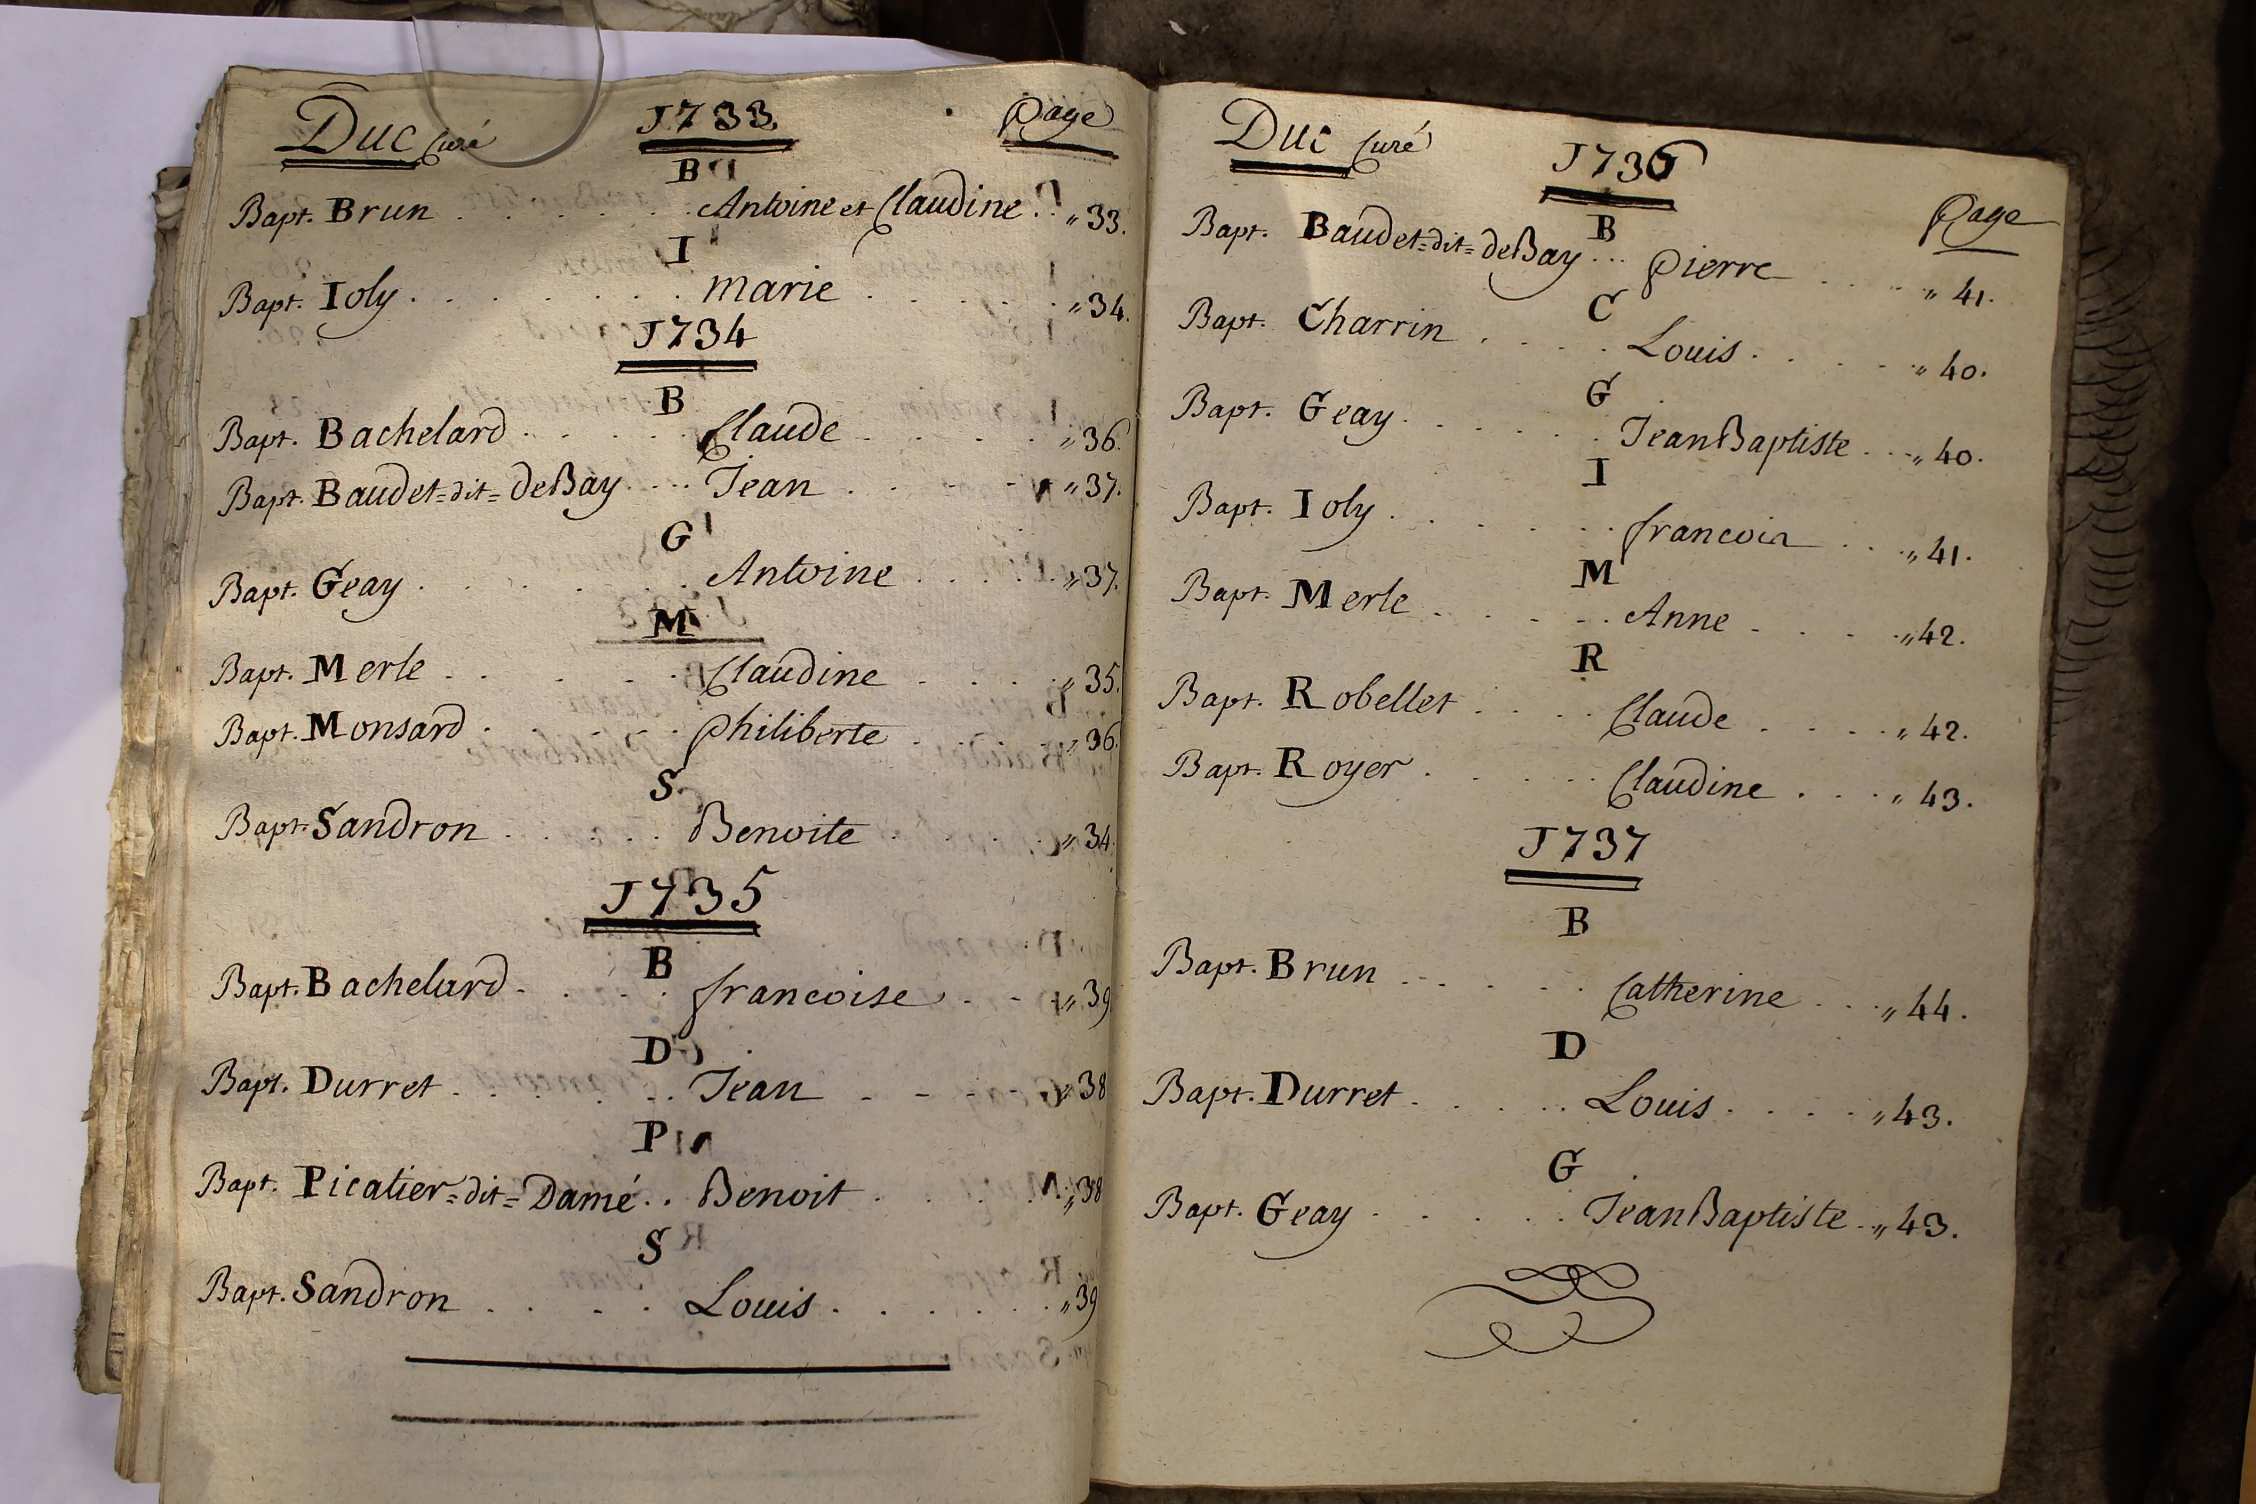 Duc Curé 1733 Page
B
Bapt. Brun . . . . . . Antoine et Claudine . . „ 33.
I
Bapt. Ioly . . . . . . . marie . . . . . . „ 34.
1734
B
Bapt. Bachelard . . . . . Claude . . . . . „ 36.
Bapt. Baudet=dit=deBay . . . Jean . . . . . „ 37.
G
Bapt. Geay . . . . . . Antoine . . . . . „ 37.
M
Bapt. Merle . . . . . Claudine . . . . . „ 35.
Bapt. Monsard . . . . . philiberte . . . . „ 36.
S
Bapt. Sandron . . . . . Benoite . . . . . „ 34.
1735
B
Bapt. Bachelard . . . . francoise . . . „ 39.
D
Bapt. Durret . . . . . . Jean . . . . „ 38
P
Bapt. Picatier=dit=Damé . . Benoit . . . . . „ 38
S
Bapt. Sandron . . . . Louis . . . . . . „ 39
Duc Curé 1736
Page
B
Bapt. Baudet=dit=deBay . . . pierre . . . . „ 41.
C
Bapt. Charrin . . . . Louis . . . . . „ 40.
G
Bapt. Geay . . . . . . JeanBaptiste . . . „ 40.
I
Bapt. Ioly . . . . . . francois . . . „ 41.
M
Bapt. Merle . . . . . Anne . . . . . „ 42.
R
Bapt. Robellet . . . . Claude . . . . . „ 42.
Bapt. Royer . . . . . Claudine . . . . „ 43.
1737
B
Bapt. Brun . . . . . Catherine . . . „ 44.
D
Bapt. Durret . . . . . Louis . . . . . „ 43.
G
Bapt. Geay . . . . . JeanBaptiste . . „ 43.